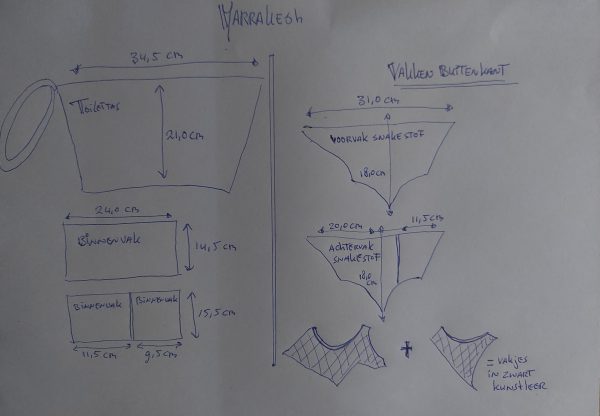 MARRAKESH
34,5 cm
TOILETTAS
21,0 cm
24,0 cm
BINNENVAK
14,5 cm
BINNENVAK
BINNENVAK
15,5 cm
11,5 cm
9,5 cm
VAKKEN BUITENKANT
31,0 cm
VOORVAK SNAKESTOF
18,0 cm
20,0 cm
11,5 cm
ACHTERVAK
SNAKESTOF
18,0
cm
+
= VAKJES
IN ZWART
KUNSTLEER